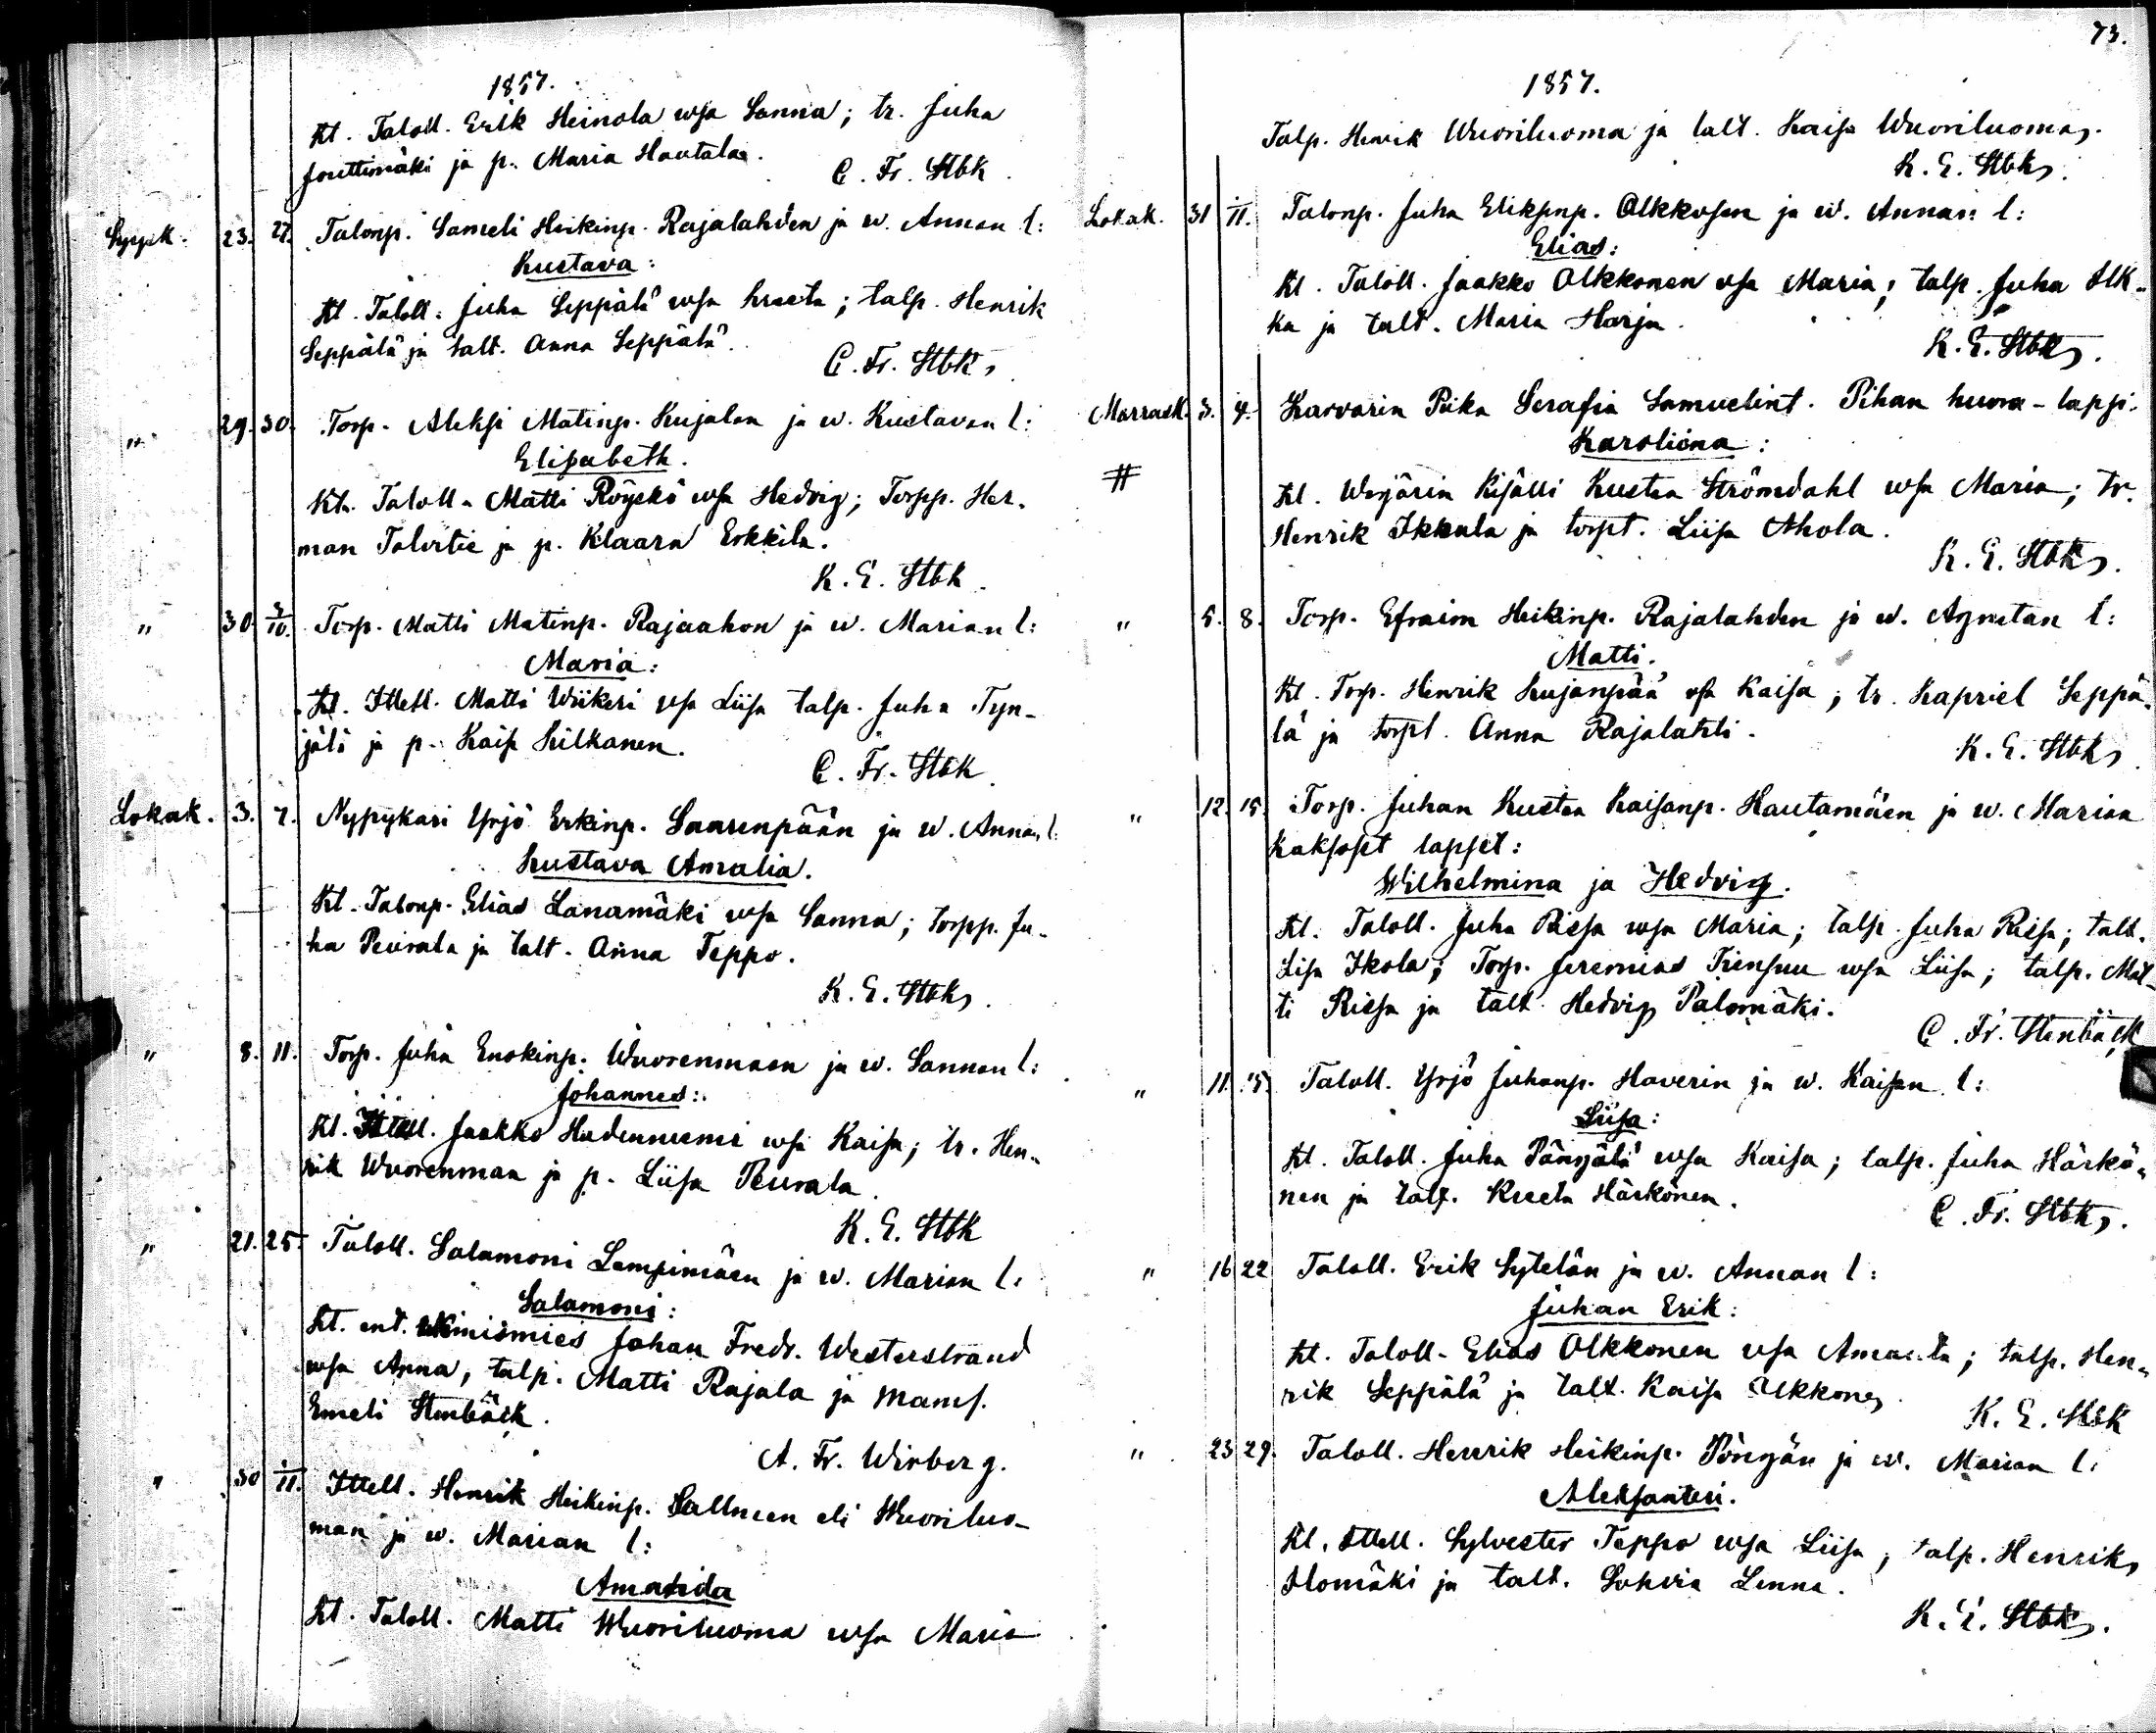 1857.
Kt. Taloll. Erik Heinola wsa Sanna; tr. Juha
Jouttimäki ja p. Maria Hautala.
C. Fr. Stbk.
Syysk. 23. 27. Talonp. Sameli Heikinp. Rajalahden ja w. Annan l:
Kustava:
Kt. Taloll. Juha Seppälä wsa Kreeta; talp. Henrik
Seppälä ja talt. Anna Seppälä.
C. Fr. Stbk.
" 29. 30. Torp. Aleksi Matinp. Kujalan ja w. Kustavan l:
Elisabeth.
Kt. Taloll. Matti Röyskö wsa Hedvig; Torpp. Her-
man Talvitie ja p. Klaara Erkkila.
K. E. Stbk.
" 30. 3/10. Torp. Matti Matinp. Rajaahon ja w. Marian l:
Maria:
Kt. Ittell. Matti Wiikeri wsa Liisa talp. Juha Tyn-
jälä ja p. Kaisa Kilkanen.
C. Fr. Stbk.
Lokak. 3. 7. Nypykari Yrjö Erkinp. Saarenpään ja w. Annan l:
Kustava Amalia.
Kt. Talonp. Elias Lanamäki wsa Sanna; torpp. Ju-
ha Peurala ja talt. Anna Teppo.
K. E. Stbk.
" 8. 11. Torp. Juha Enokinp. Wuorenmaan ja w. Sannan l:
Johannes:
Kt. Ittell. Jaakko Hudenniemi wsa Kaisa; tr. Hen-
rik Wuorenmaa ja p. Liisa Peurala.
K. E. Stbk
" 21. 25. Taloll. Salamoni Lampimäen ja w. Marian l:
Salamoni:
Kt. ent. nimismies Johan Fredr. Westerstrand
wsa Anna, talp. Matti Rajala ja Mams.
Emeli Stenbäck.
A. Fr. Wirberg.
" 30 1/11. Ittell. Henrik Heikinp. Sallneen eli Wuoriluo-
man ja w. Marian l:
Amatida
Kt. Taloll. Matti Wuoriluoma wsa Maria
73.
1857.
Talp. Henrik Wuoriluoma ja talt. Kaisa Wuoriluoma.
K. E. Stbk.
Lokak. 31 1/11. Talonp. Juha Erikinp. Olkkosen ja w. Annan l:
Elias:
Kt. Taloll. Jaakko Olkkonen wsa Maria; talp. Juha Ilk-
ka ja talt. Maria Harju.
K. E. Stbk.
Marrask. 3. 4. Karvarin Piika Serafia Samuelint. Pihan huora-lapsi.
Karoliina:
# Kt. Wärjärin Kisälli Kustaa Strömdahl wsa Maria; tr.
Henrik Ikkala ja torpt. Liisa Ahola.
K. E. Stbk.
" 5. 8. Torp. Efraim Heikinp. Rajalahden ja w. Agnetan l:
Matti.
Kt. Torp. Henrik Kujanpää wsa Kaisa; tr. Kapriel Seppä-
lä ja torpt. Anna Rajalahti.
K. E. Stbk.
" 12. 15. Torp. Juhan Kustaa Kaisanp. Hautamäen ja w. Marian
kaksoset lapset:
Wilhelmina ja Hedvig.
Kt. Taloll. Juha Rissa wsa Maria; talp. Juha Rissa; talt.
Lisa Ikola; Torp. Jeremias Tiensuu wsa Liisa; talp. Mat-
ti Rissa ja talt. Hedvig Palomäki.
C. Fr. Stenbäck
" 11. 15. Taloll. Yrjö Juhanp. Haverin ja w. Kaisan l:
Liisa:
Kt. Taloll. Juha Pännälä wsa Kaisa; talp. Juha Härkö-
nen ja talt. Kreeta Härkönen.
C. Fr. Stbk.
" 16 22 Taloll. Erik Sytelän ja w. Annan l:
Juhan Erik:
Kt. Taloll. Elias Olkkonen wsa Amanta; talp. Hen-
rik Seppälä ja talt. Kaisa Olkkonen.
K. E. Stbk
" 23 29. Taloll. Henrik Heikinp. Pörnyän ja w. Marian l:
Aleksanteri.
Kt. Ittell. Sylvester Teppo wsa Liisa; talp. Henrik
Ilomäki ja talt. Sohvia Lenna.
K. E. Stbk.